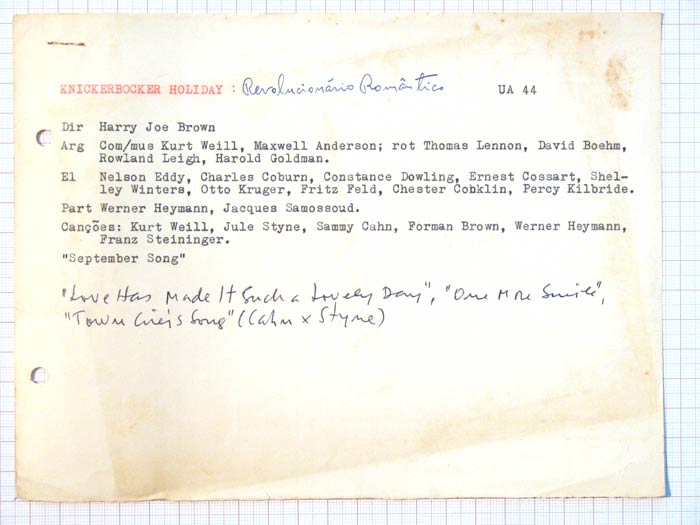 KNICKERBOCKER HOLIDAY : Revolucionário Romântico UA 44
Dir Harry Joe Brown
Arg Com/mus Kurt Weill, Maxwell Anderson; rot Thomas Lennon, David Boehm,
Rowland Leigh, Harold Goldman.
El Nelson Eddy, Charles Coburn, Constance Dowling, Ernest Cossart, Shel-
ley Winters, Otto Kruger, Fritz Feld, Chester Cobklin, Percy Kilbride.
Part Werner Heymann, Jacques Samossoud.
Canções: Kurt Weill, Jule Styne, Sammy Cahn, Forman Brown, Werner Heymann,
Franz Steininger.
"September Song"
"Love Has Made It Such a Lovely Day", "One More Smile",
"Town Crier's Song" (Cahn x Styne)